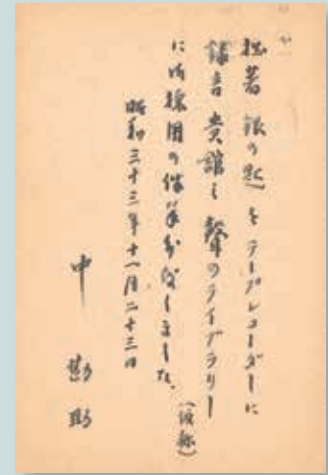 拙著 銀の匙 をテープレコーダーに
録音 貴館の聲のライブラリー
(假称)
に御採用の件致しました。
昭和三十三年十一月二十三日
中 勘助